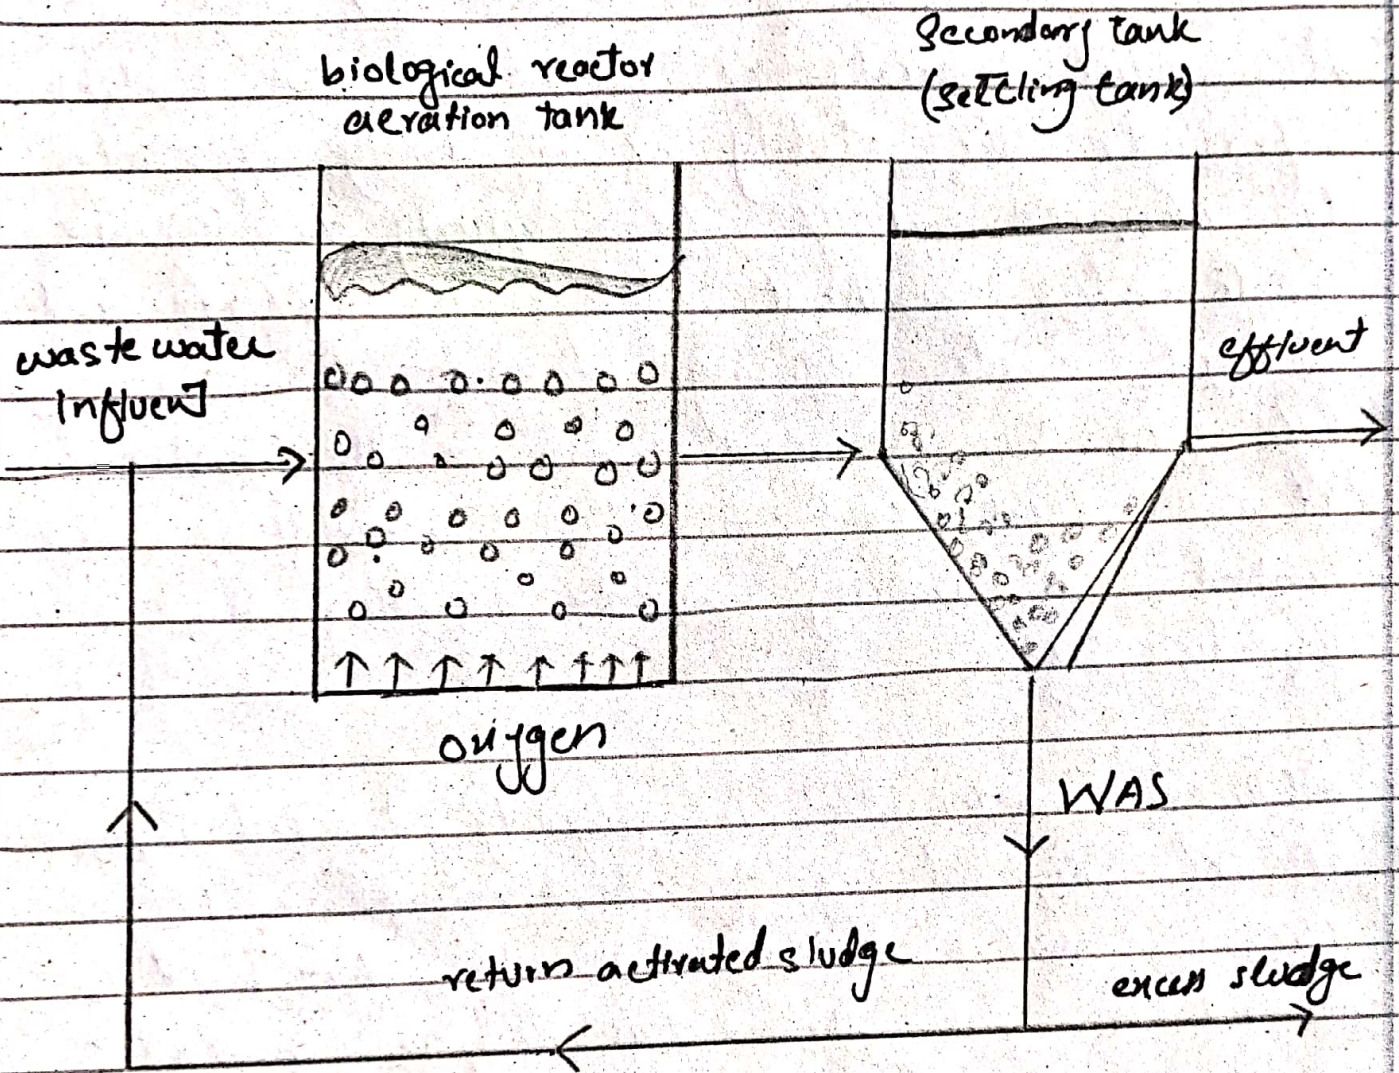 biological reactor
aeration tank
Secondary tank
(settling tank)
waste water
Influent
effluent
oxygen
WAS
return activated sludge
excess sludge